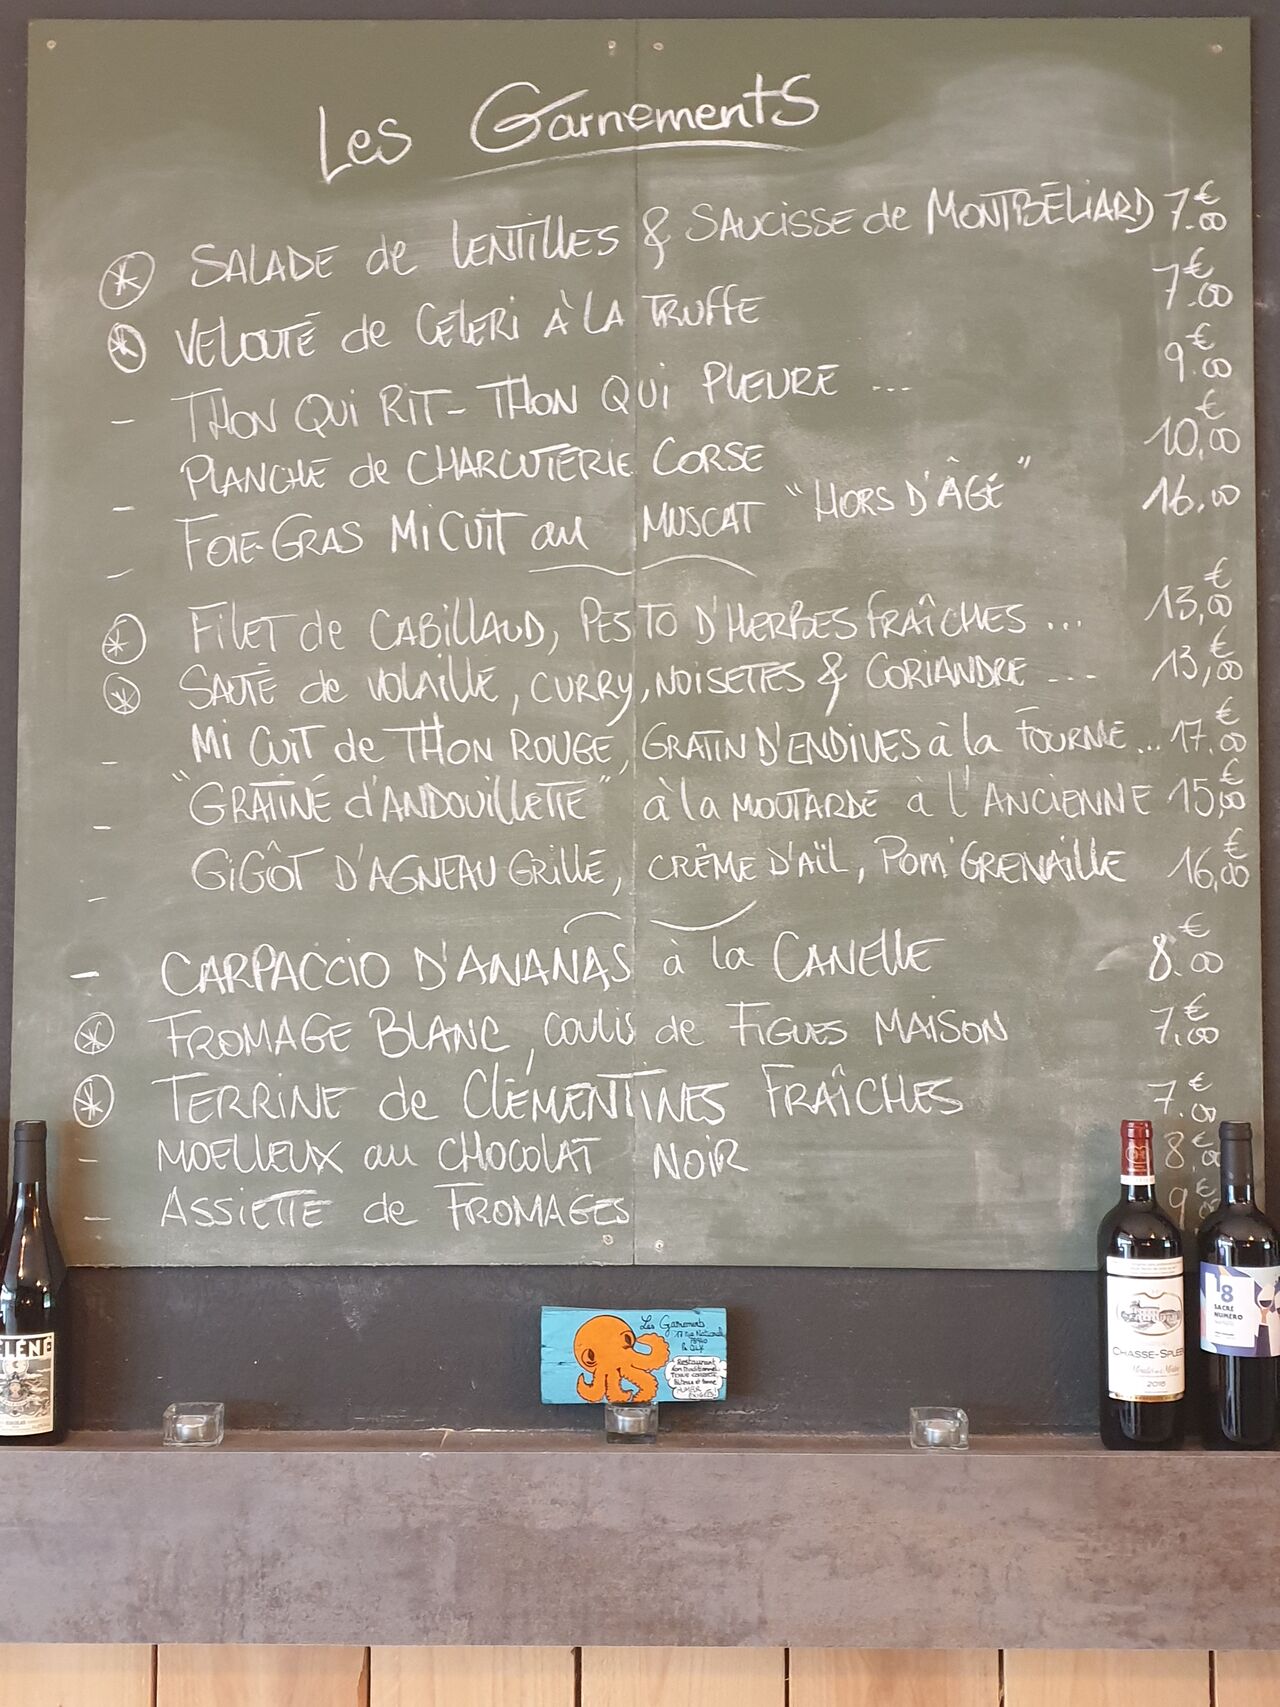 Les Garnements
SALADE de LENTILLES & SAUCISSE de MONTBÉLIARD 7.00 €
VELOUTÉ de CÉLERI À LA TRUFFE 7.00 €
- THON QUI RIT - THON QUI PLEURE ... 9.00 €
- PLANCHE de CHARCUTERIE CORSE 10,00 €
- FOIE-GRAS MI CUIT au MUSCAT "HORS D'ÂGE" 16.00
FILET de CABILLAUD, PESTO D'HERBES FRAÎCHES ... 13,00 €
SAUTÉ de VOLAILLE, CURRY, NOISETTES & CORIANDRE ... 13,00 €
- MI CUIT de THON ROUGE, GRATIN D'ENDIVES à la FOURME ... 17.00 €
- "GRATINÉ d'ANDOUILLETTE" à la MOUTARDE à l'ANCIENNE 15,00 €
- GIGÔT D'AGNEAU GRILLÉ, CRÊME D'AÏL, POM'GRENAILLE 16,00 €
- CARPACCIO D'ANANAS à la CANELLE 8.00 €
FROMAGE BLANC, COULIS de FIGUES MAISON 7.00 €
TERRINE de CLÉMENTINES FRAÎCHES 7.00 €
- MOELLEUX au CHOCOLAT NOIR 8.00 €
- ASSIETTE de FROMAGES 9 €
Les Garnements
17 rue Nationale
78940
Restaurant
ÉLÉNÉ
CHASSE-SPLEEN
2018
18
SACRÉ
NUMÉRO